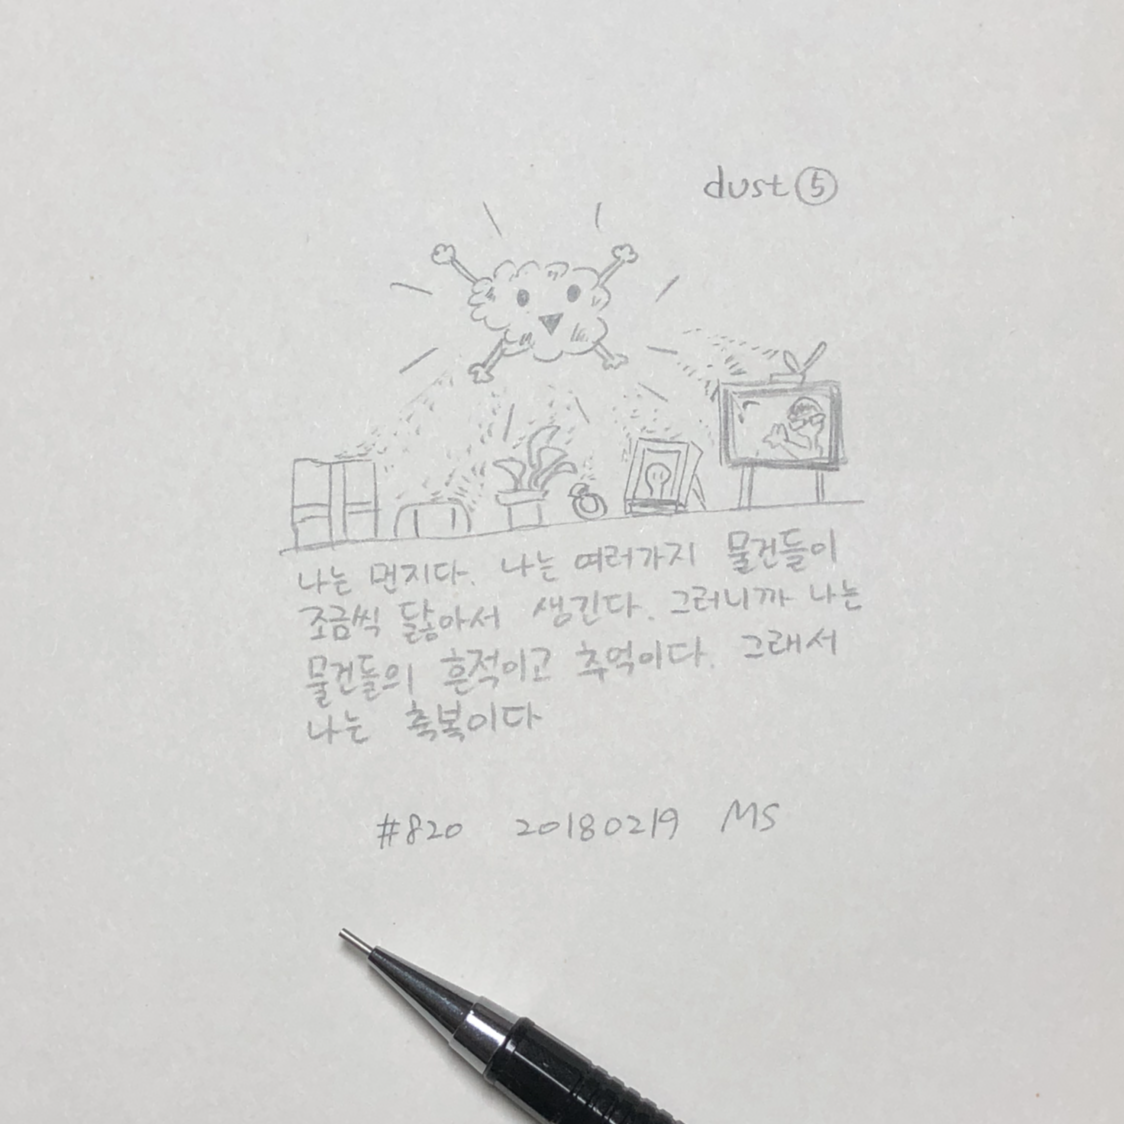 dust ⑤
나는 먼지다. 나는 여러가지 물건들이
조금씩 닳아서 생긴다. 그러니까 나는
물건들의 흔적이고 추억이다. 그래서
나는 축복이다
#820 20180219 MS